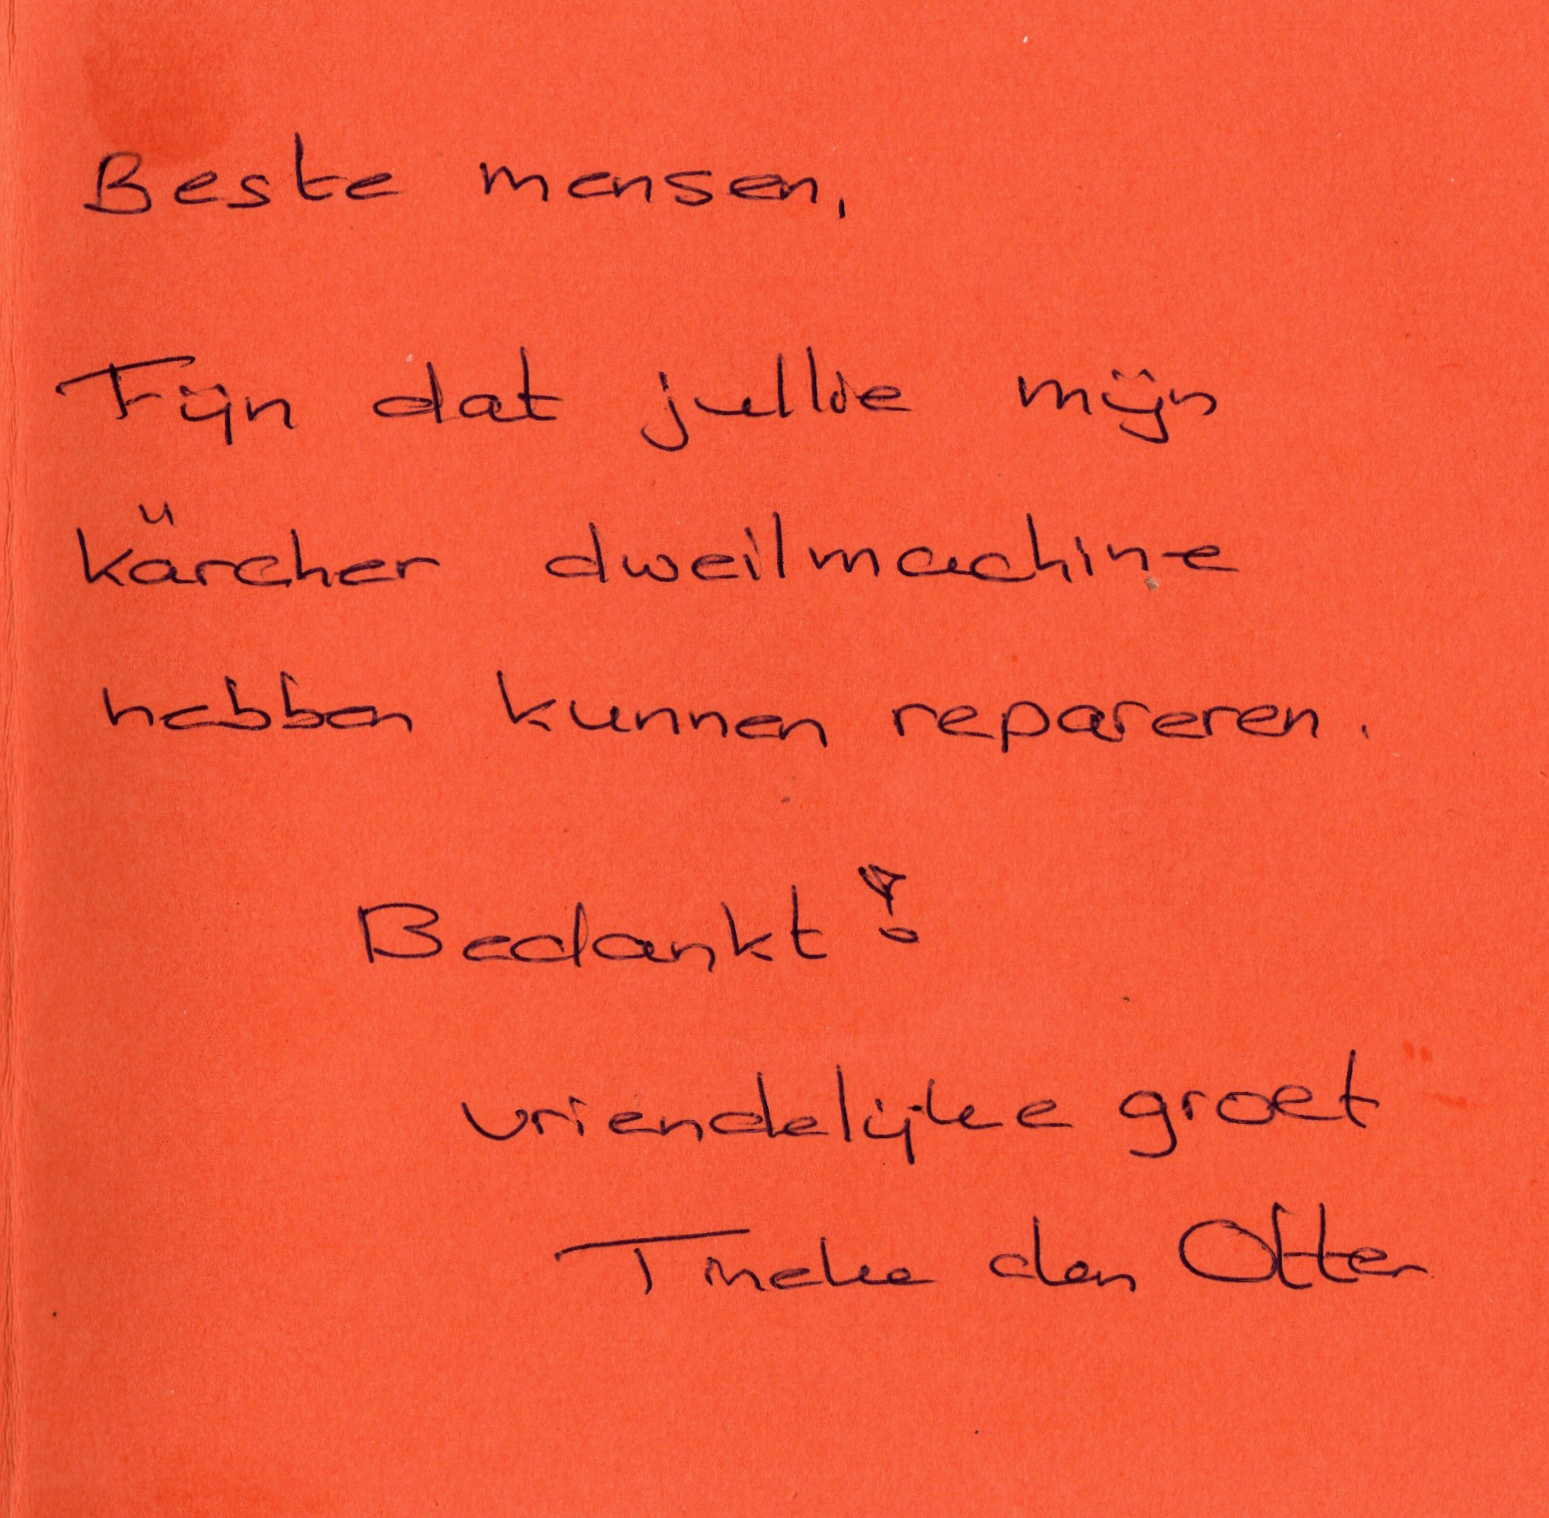 Beste mensen,
Fijn dat jullie mijn
kärcher dweilmachine
hebben kunnen repareren.
Bedankt!
vriendelijke groet
Tineke den Otter